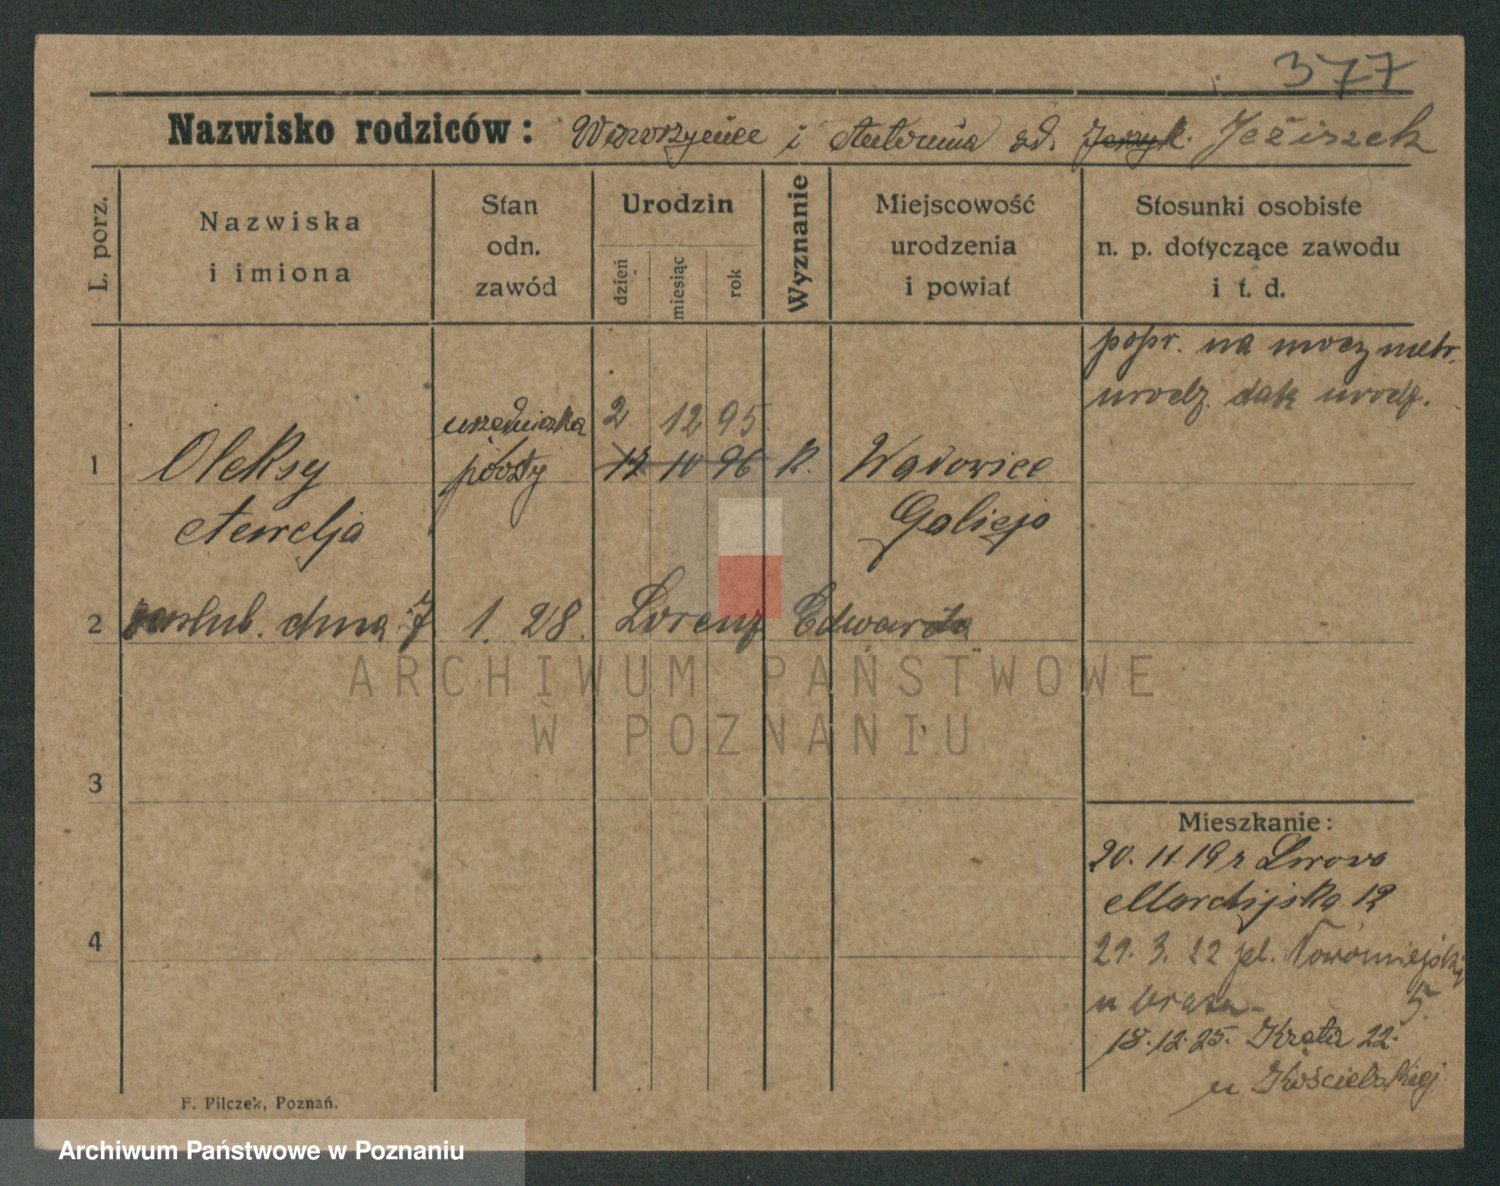 377
Nazwisko rodziców: Wawrzyniec i Antonina zd. Jeżyk. Jeziszek
L. porz.
Nazwiska i imiona
Stan odn. zawód
Urodzin
dzień
miesiąc
rok
Wyznanie
Miejscowość urodzenia i powiat
Stosunki osobiste n. p. dotyczące zawodu i t. d.
popr. na mocy metr.
urodz. datę urodz.
urzędniczka 2 12 95
1 Oleksy poczty 12 10 96 k. Wadowice
Aurelja Galicja
2 poślub. dnia 7 1. 28. Lorenz Edwarda
3
4
Mieszkanie:
20. 11. 19 r Lwowo
Martijska 12
29. 3. 22 pl. Nowomiejski
u 5.
18. 12. 25. Kręta 22.
u Kościelskiej
F. Pilczek, Poznań.
ARCHIWUM PAŃSTWOWE
W POZNANIU
Archiwum Państwowe w Poznaniu